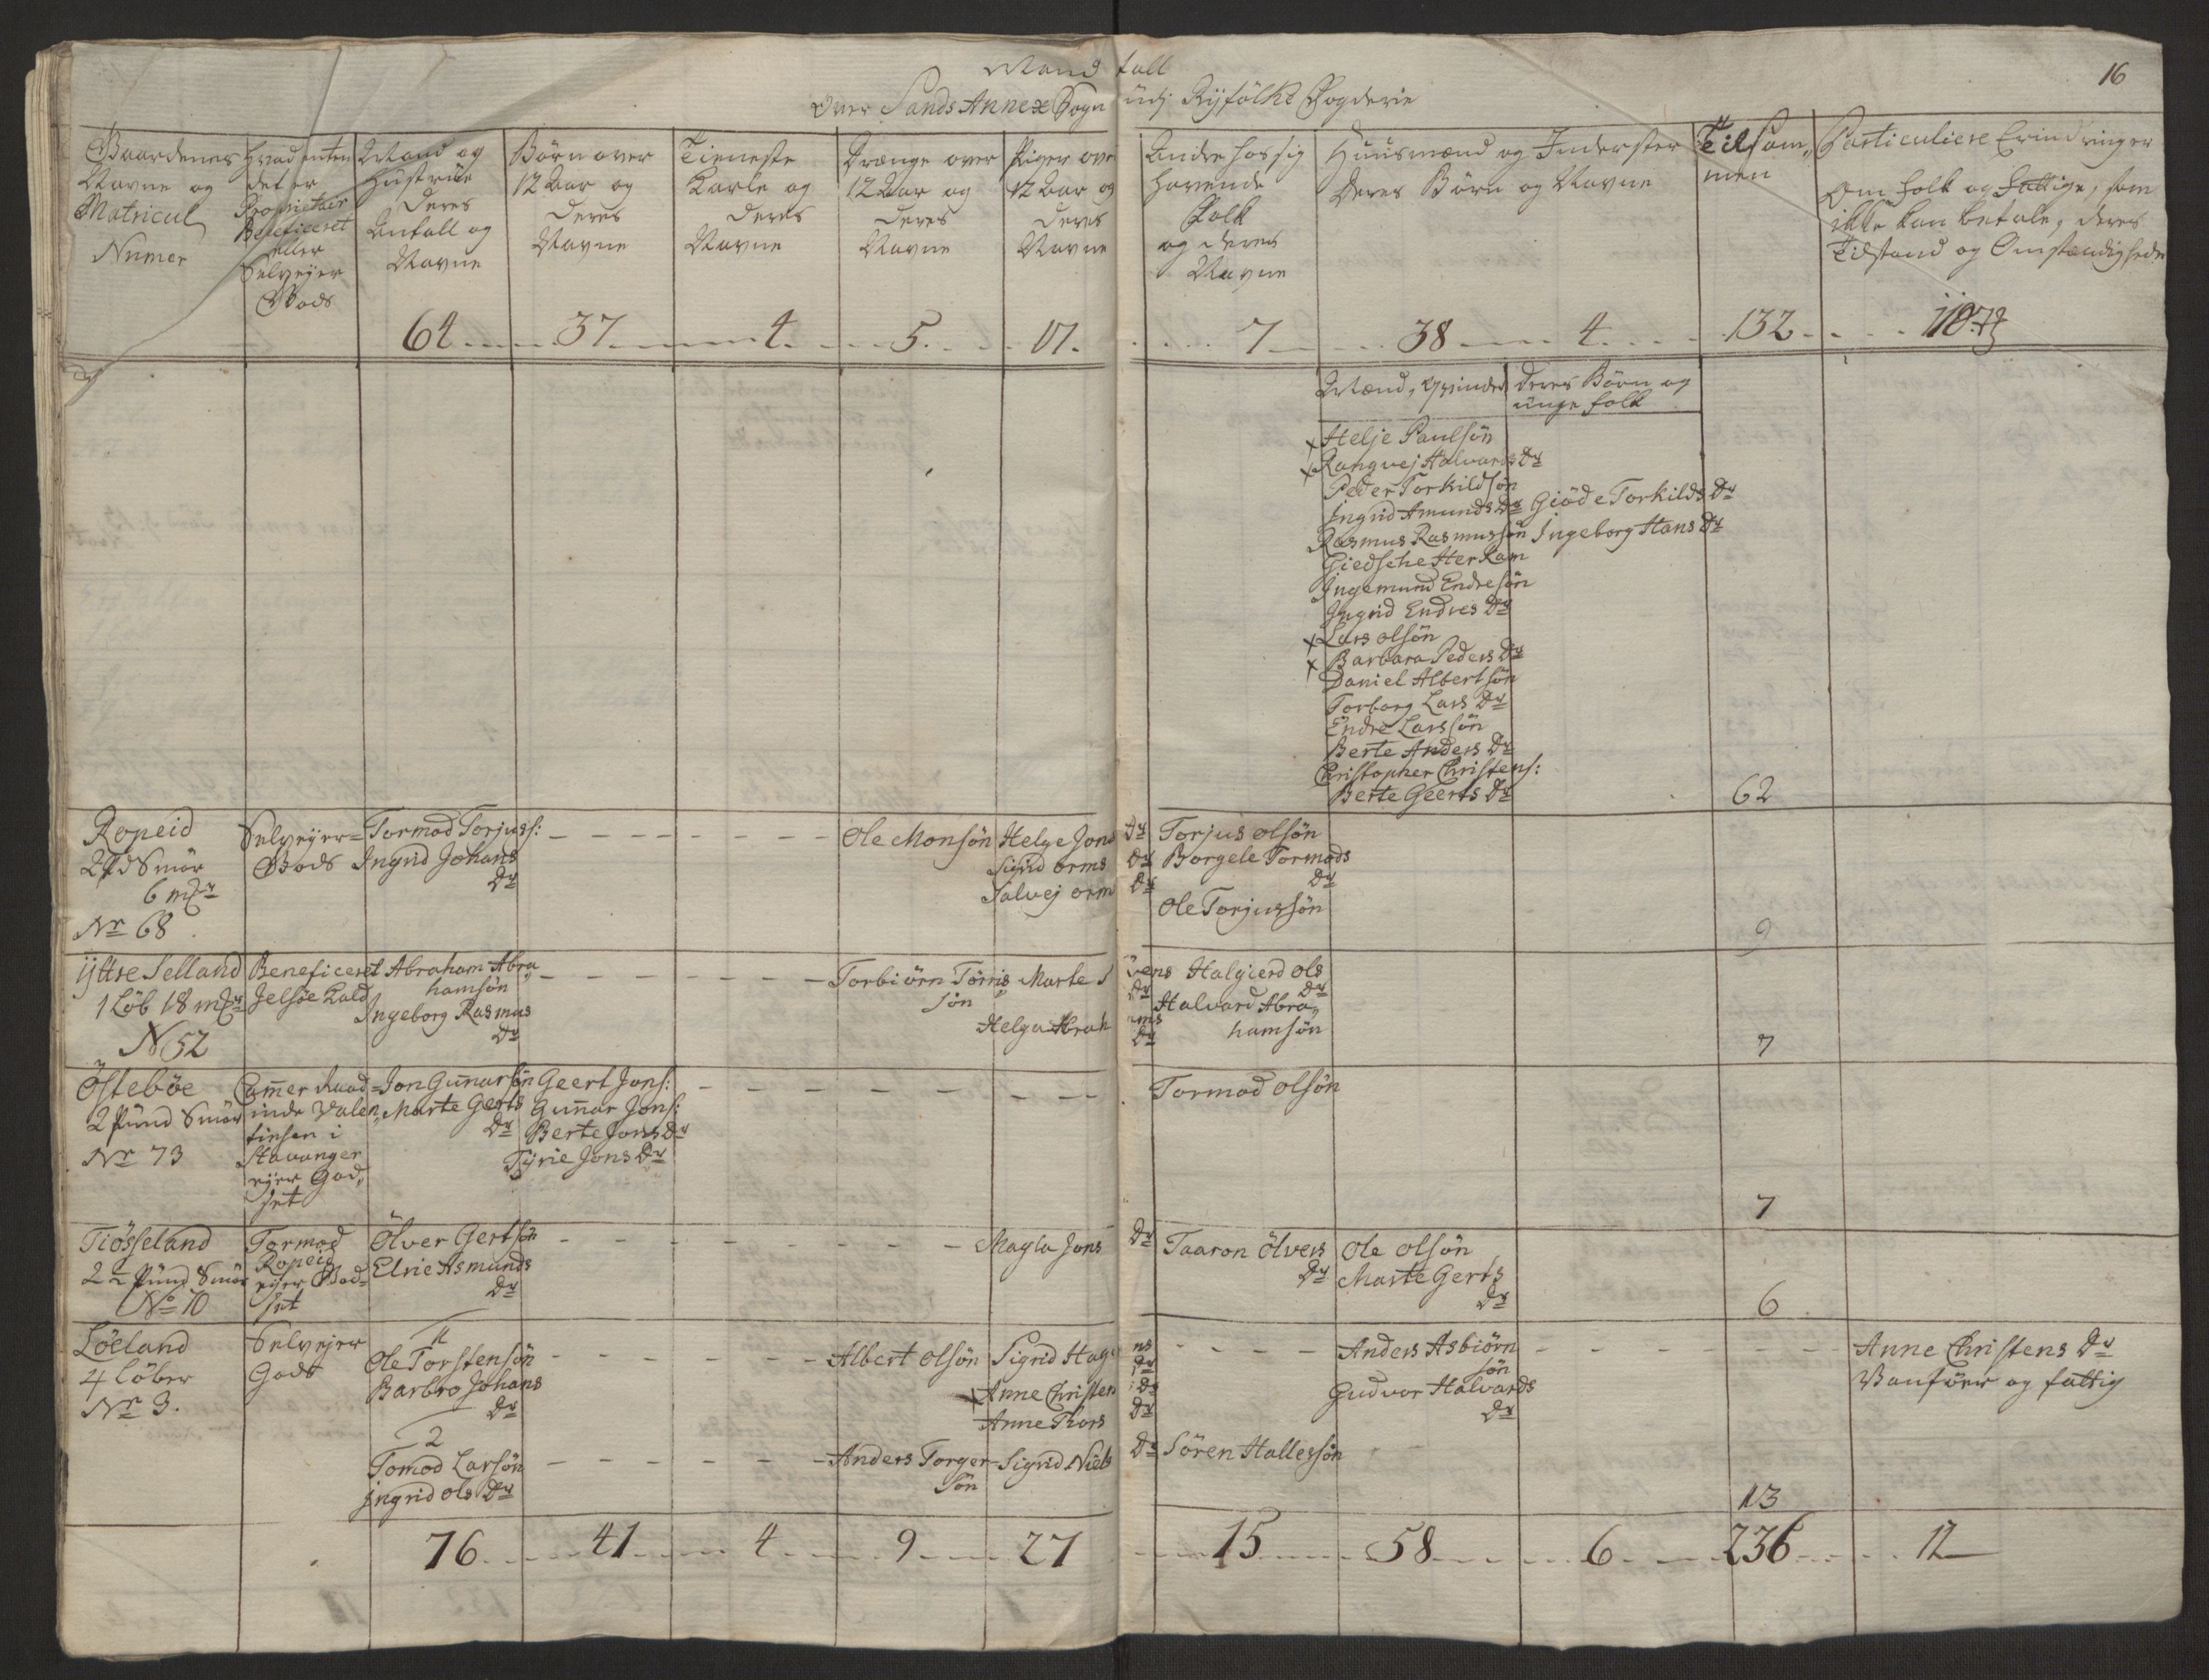 16
Mand tall
Over Sands Annex Sogn udj Ryfölke Fogderie
Gaardenes
Navne og
Matricul
Numer
Hvad enten
det er
Proprietair
Beneficeret
eller
Selvejer
Gods
Mand og
Hustrue
Deres
Antall og
Navne
Börn over
12 Aar og
Deres
Navne
Tieneste
Karle og
Deres
Navne
Drænge over
12 Aar og
Deres
Navne
Piger over
12 Aar og
Deres
Navne
Andre hos sig
havende
Folk
og deres
Navne
Huusmænd og Inderster
Deres Börn og Navne
Tilsam„
men
Particuliere Erindringer
Om folk og fattige, som
ikke kan betale, deres
Tilstand og Omstændigheder
64 37 4 5 17 7 38 4 132
Mænd, Qvinder
Deres Börn og
unge folk
x Helje Paulsön
x Rangvej Halvards Dr
Peder Torkildsön
Ingrid Amunds Dr Giöde Torkilds Dr
Rasmus Rasmussön Ingeborg Hans Dr
Giedsche Herkam
Ingemund Endresön
Ingrid Endres Dr
x Lars olsön
x Barbara Peders Dr
Daniel Albertsön
Torborg Lars Dr
Endre Larssön
Berte Anders Dr
Christopher Christens:
Berte Geerts Dr
62
Ropeid
2 Pd Smör
6 mr
Nr 68
Selvejer=
Gods
Tormod Torjuss:
Ingrid Johans
Dr
Ole Monsön
Helge Jons Dr
Sigrid orms Dr
Salvej orms Dr
Torjus olsön
Borgele Tormods
Dr
Ole Torjussön
9
ÿttre Selland
1 Löb 18 mr
N 52
Beneficeret
Jelsöe Kald
Abraham Abra„
hamsön
Ingeborg Rasmus
Dr
Torbiörn Törris
sön
Marte
Dr
Helga Abrahams
Dr
Halgierd ols
Dr
Halvard Abra„
hamsön
7
Östeböe
2 Pund Smör
Nr 73
Cammer Raad=
inde Valen„
tinsen i
Stavanger
ejer God„
set
Jon Gunnarsön
Marte Gerts
Dr
Geert Jons:
Gunnar Jons:
Berte Jons Dr
Tÿrie Jons Dr
Tormod olsön
7
Tiösseland
2 Pund Smör
No 10
Tormod
Ropeid
ejer God=
set
Ölver Gertsön
Elsie Asmunds
Dr
Magla Jons Dr
Taaron Ölvers
Dr
Ole olsön
Marte Gerts
Dr
6
Löeland
4 löber
Nr 3.
Selvejer
Gods
1
Ole Torstensön
Barbro Johans
Dr
2
Tomod Larsön
Ingrid ols Dr
Albert olsön
Anders Torger
sön
Sigrid
Dr
x Anne Christens Dr
Anne Thors Dr
Sigrid Niels Dr
Sören Hallessön
Anders Asbiörn
sön
Gudvor Halvards
Dr
Anne Christens Dr
Vanför og fattig
13
76 41 4 9 27 15 58 6 236 12